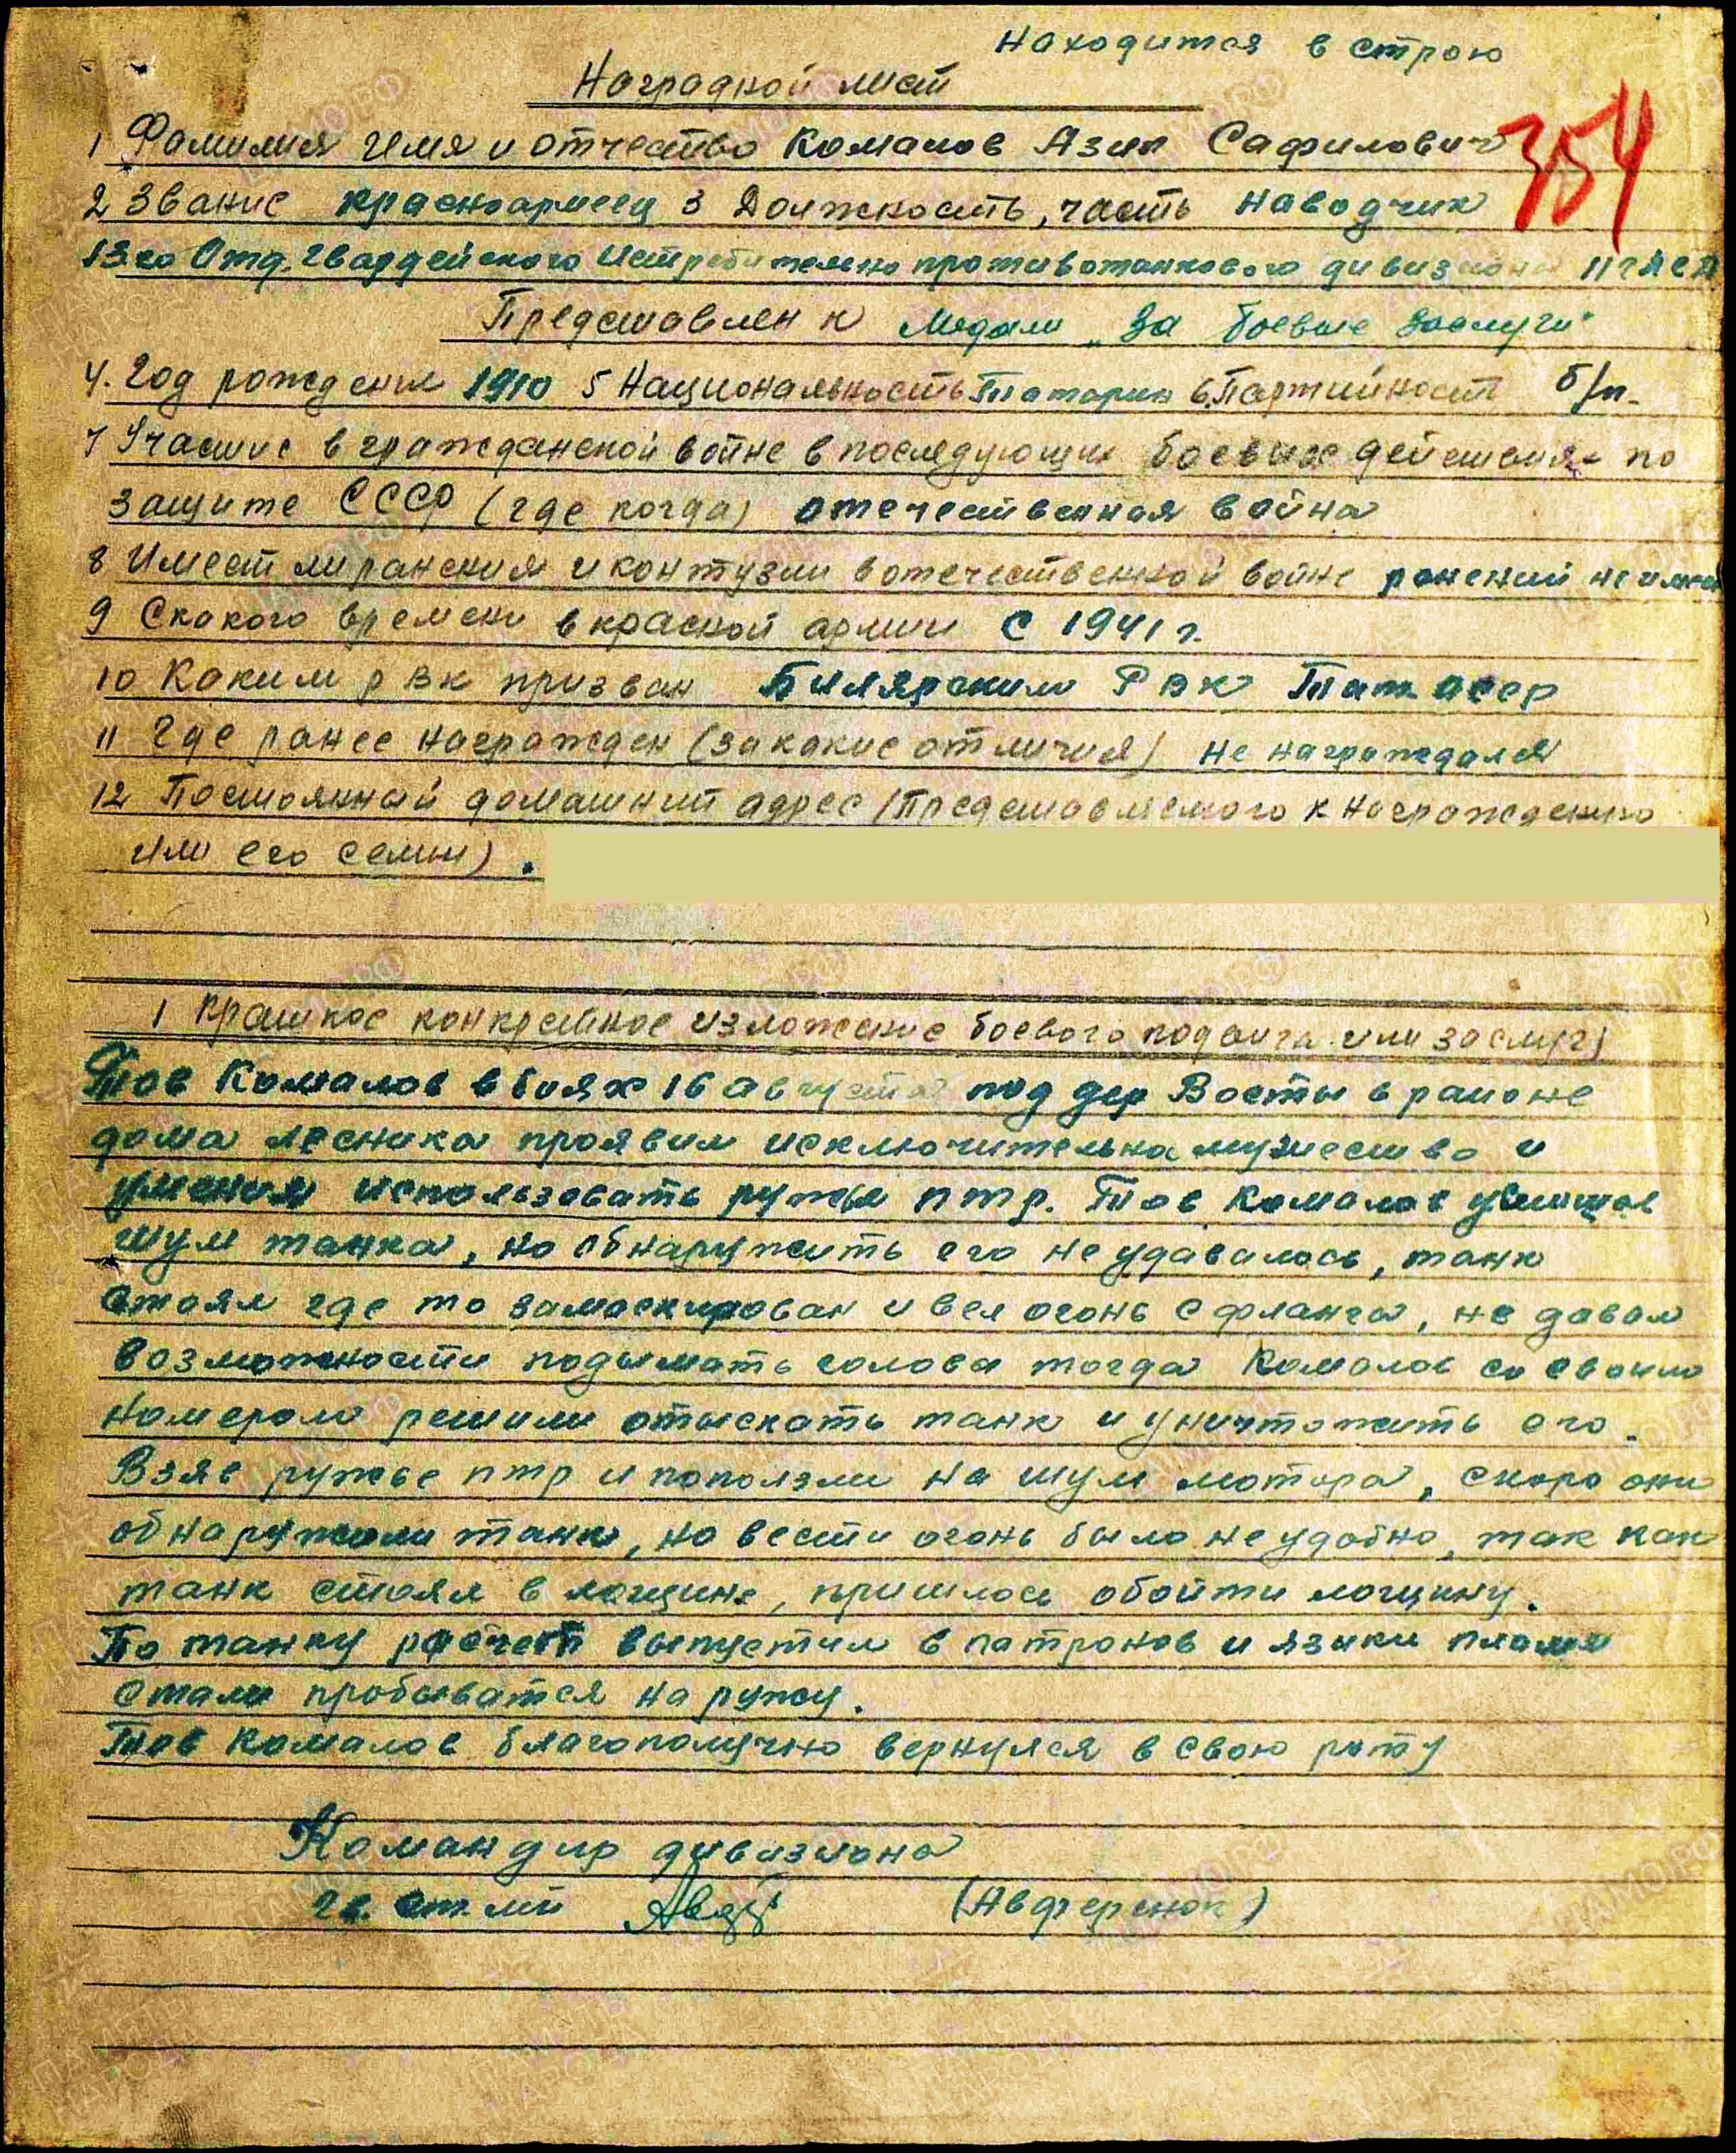 Находится в строю
Наградной лист
354
1 Фамилия Имя и отчество Комалов Азип Сафилович
2 Звание красноармеец 3 Должность, часть наводчик
13го Отд. Гвардейского Истребительно противотанкового дивизиона 11 г
Представлен к Медали „За боевые заслуги"
4. Год рождения 1910 5 Национальность Татарин 6. Партийность б/п.
7 Участие в гражданской войне в последующих боевых действиях по
защите СССР (где когда) отечественная война
8 Имеет ли ранения и контузии в отечественной войне ранений не имеет
9 Скакого времени в красной армии С 1941 г.
10 Каким РВК призван Билярским РВК Тат. АССР
11 Где ранее награжден (за какие отличия) не награждался
12 Постоянный домашний адрес (Представляемого к награждению
или его семьи).
1 Краткое конкретное изложение боевого подвига или заслуг)
Тов Комалов в боях 16 августа под дер Восты в районе
дома лесника проявил исключительна мужество и
умения использовать ружья птр. Тов Комалов услышав
шум танка, но обнаружить его не удавалось, танк
стоял где то замаскирован и вел огонь с фланга, не давал
возможности подымать голова тогда Комалов со своим
номером решили отыскать танк и уничтожить его.
Взяв ружье птр и поползли на шум мотора, скоро они
обнаружили танк, но вести огонь было не удобно, так как
танк стоял в лощине, пришлось обойти лощину.
По танку расчет выпустил 6 патронов и языки пламя
стали пробиватся на ружу.
Тов Комалов благополучно вернулся в свою роту
Командир дивизиона
Гв. ст. л-т (Авдгеренок)